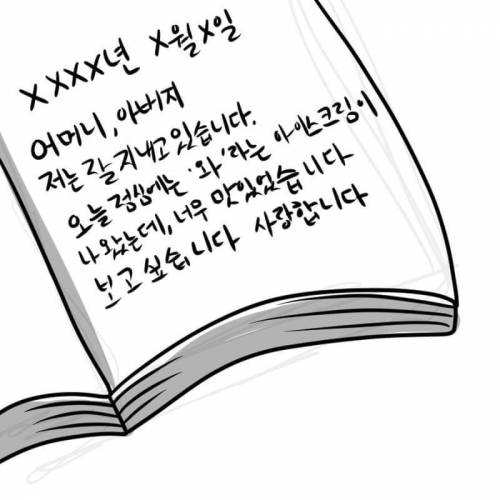 XXXX년 X월X일
어머니, 아버지
저는 잘 지내고 있습니다.
오늘 점심에는 '와' 라는 아이스크림이
나왔는데, 너무 맛있었습니다
보고싶습니다 사랑합니다